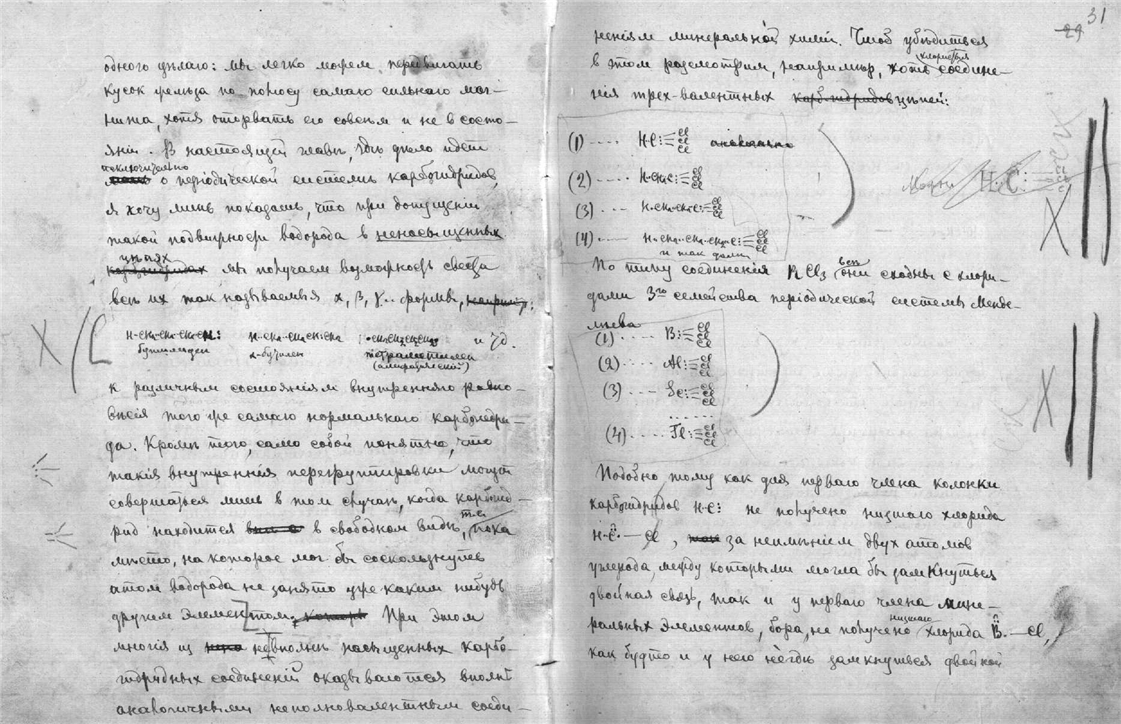 одного цѣлаго: мы легко можем передвигать
кусок желѣза по полюсу самаго сильнаго маг-
нита, хотя оторвать его совсѣм и не в состо-
янiи. В настоящей главѣ, гдѣ дѣло идет
исключительно
о перiодической системѣ карбогидридов,
я хочу лишь показать, что при допущенiи
такой подвижности водорода в ненасыщенных
цѣпях
карбогидридах мы получаем возможность свести
всѣ их так называемыя α, β, γ.. формы,
H-CH₂-CH₂-CH₂C H: H-CH₂-CH₂-CH:CH₂ ·CH₂CH₂CH₂CH₂· и т.д.
бутилиден α-бутилен тетраметилен
к различным состоянiям внутренняго равно-
вѣсiя того же самаго нормальнаго карбогидри-
да. Кромѣ того, само собой понятно, что
такiя внутреннiя перегруппировки могут
совершаться лишь в том случаѣ, когда карбогид-
рид находится в свободном видѣ, т.е. пока
мѣсто, на которое мог бы соскользнуть
атом водорода не занято уже каким нибудь
другим элементом. При этом
многiя из не вполнѣ насыщенных карбо-
гидридных соединенiй оказываются вполнѣ
аналогичными неполновалентным соеди-
31
29
ненiям минеральной химiи. Чтоб убѣдиться
хлористыя
в этом разсмотрим, например, хоть соедине-
нiя трех-валентных карбогидридов цѣпей:
(1) .... H-C: Cl Cl Cl
(2) .... H-CH₂C: Cl Cl Cl
(3) ... H-CH₂-CH₂C: Cl Cl Cl
(4) .... H-CH₂-CH₂-CH₂C: Cl Cl Cl
и так далѣе
H C:
По типу соединенiя R Cl₃ всѣ они сходны с хлори-
дами 3го семейства перiодической системы Менде-
лѣева
(1) .... B: Cl Cl Cl
(2) .... Al: Cl Cl Cl
(3) .... Sc: Cl Cl Cl
......
(4) .... Tl: Cl Cl Cl
Подобно тому как для перваго члена колонки
карбогидридов H·C: не получено низшаго хлорида
H·C̈·—Cl, за неимѣнiем двух атомов
углерода, между которыми могла бы замкнуться
двойная связь, так и у перваго члена мине-
ральных элементов, бора, не получено низшаго хлорида B̈.—Cl,
как будто и у него негдѣ замкнуться двойной